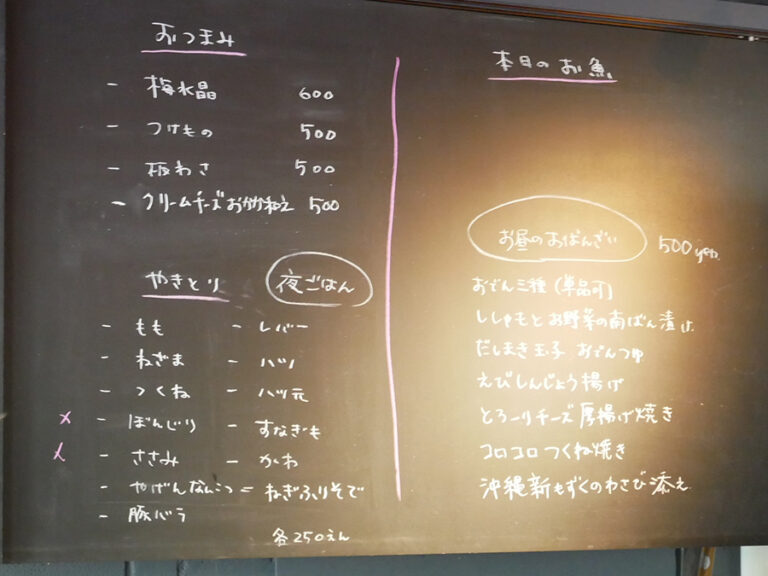 おつまみ
- 梅水晶 600
- つけもの 500
- 板わさ 500
- クリームチーズおかかわえ 500
やきとり 夜ごはん
- もも - レバー
- ねぎま - ハツ
- つくね - ハツ元
× - ぼんじり - すなぎも
× - ささみ - かわ
- やげんなんこつ = ねぎふりそで
- 豚バラ
各250えん
本日のお魚
お昼のおばんざい 500yen
おでん三種 (単品可)
ししゃもとお野菜の南ばん漬け
だしまき玉子 おでんつゆ
えびしんじょう揚げ
とろーりチーズ厚揚げ焼き
コロコロつくね焼き
沖縄新もずくのわさび添え